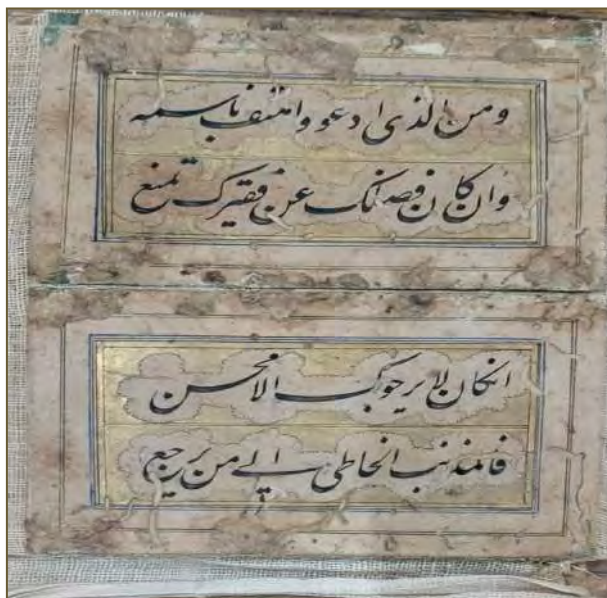 ومن الذی ادعو واهتف باسمه
وان کان فضلک عن فقیرک تمنع
انکان لا یرجوک الا محسن
فالمذنب الخاطی الی من یرجع